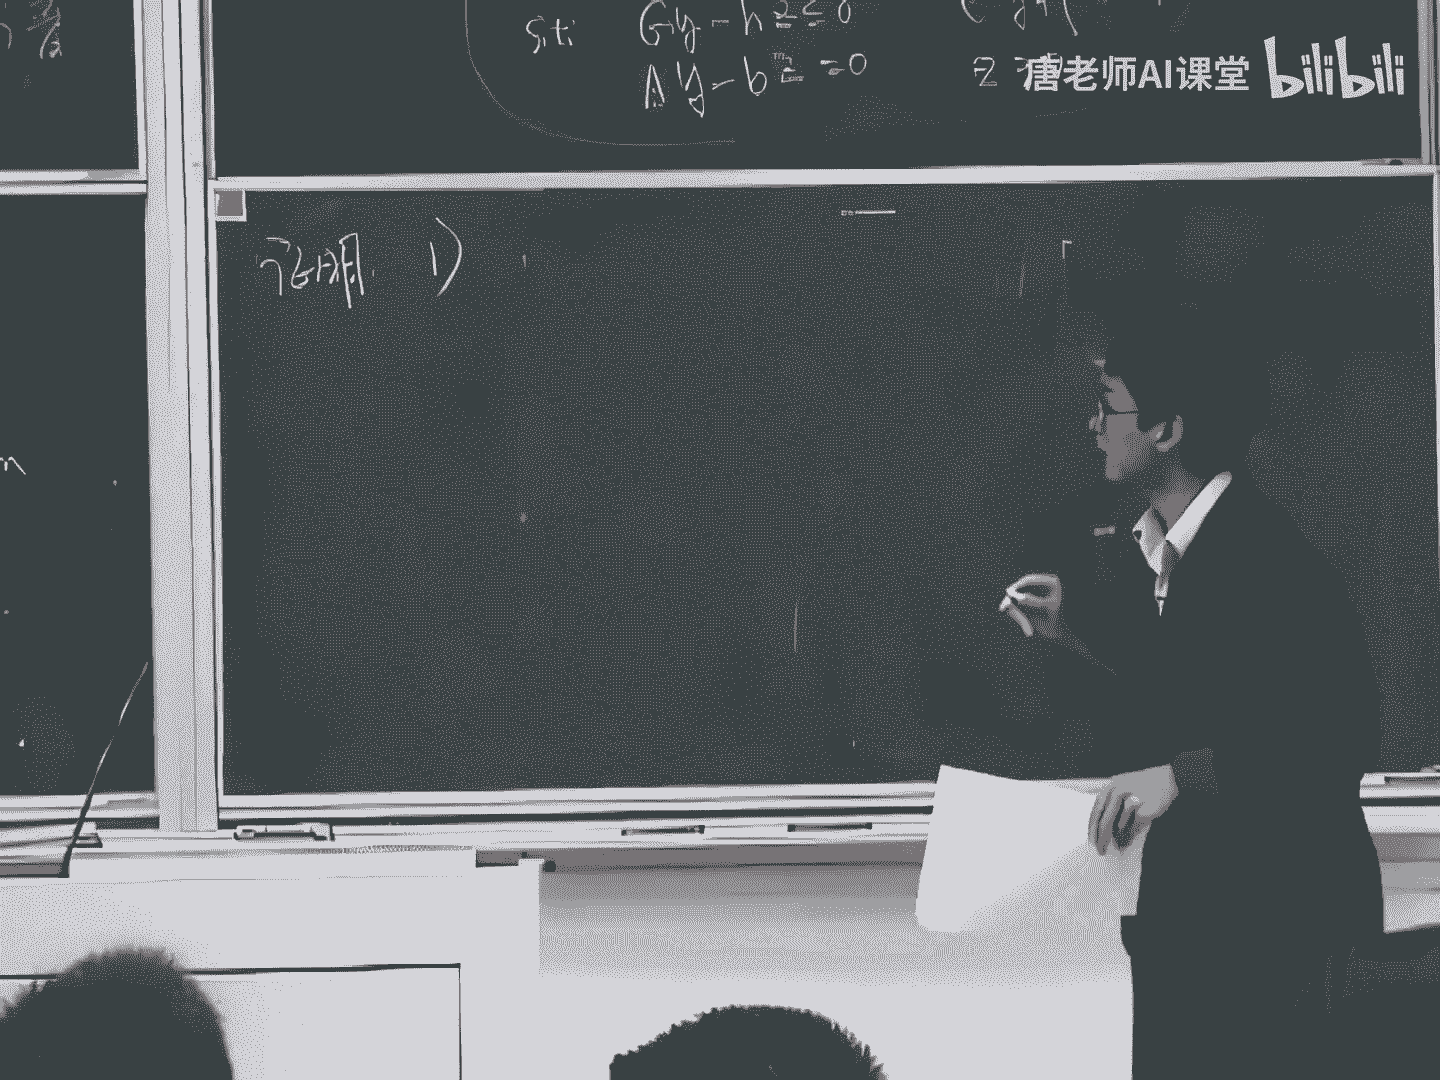 s.t. Gy - hz ≤ 0
Ay - bz = 0
z
唐老师AI课堂 bilibili
证明 1)
m